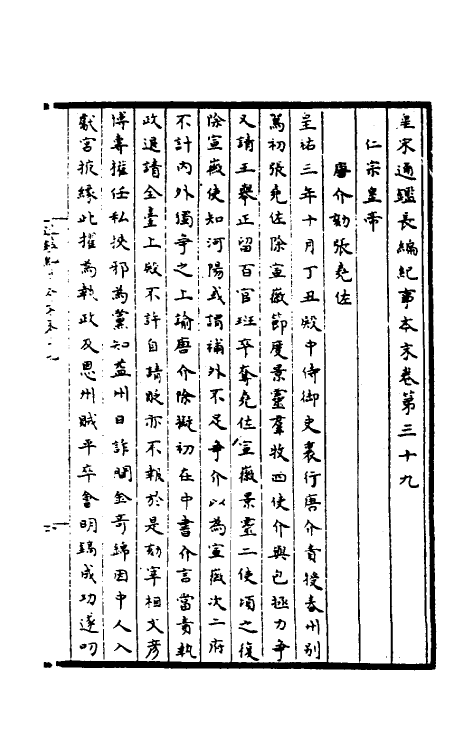 皇宋通鑑長編紀事本末卷第三十九
仁宗皇帝
唐介劾張堯佐
皇祐三年十月丁丑殿中侍御史裏行唐介責授春州別
駕初張堯佐除宣徽節度景靈羣牧四使介與包拯力爭
又請王舉正留百官班卒奪堯佐宣徽景靈二使頃之復
除宣徽使知河陽或謂補外不足爭介以為宣徽次二府
不計內外獨爭之上諭唐介除擬初在中書介言當責執
政退請全臺上殿不許自請貶亦不報於是劾宰相文彥
博專權任私挾邪為黨知益州日作間金奇錦因中人入
獻宮掖緣此擢為執政及恩州賊平卒會明鎬成功遂叨